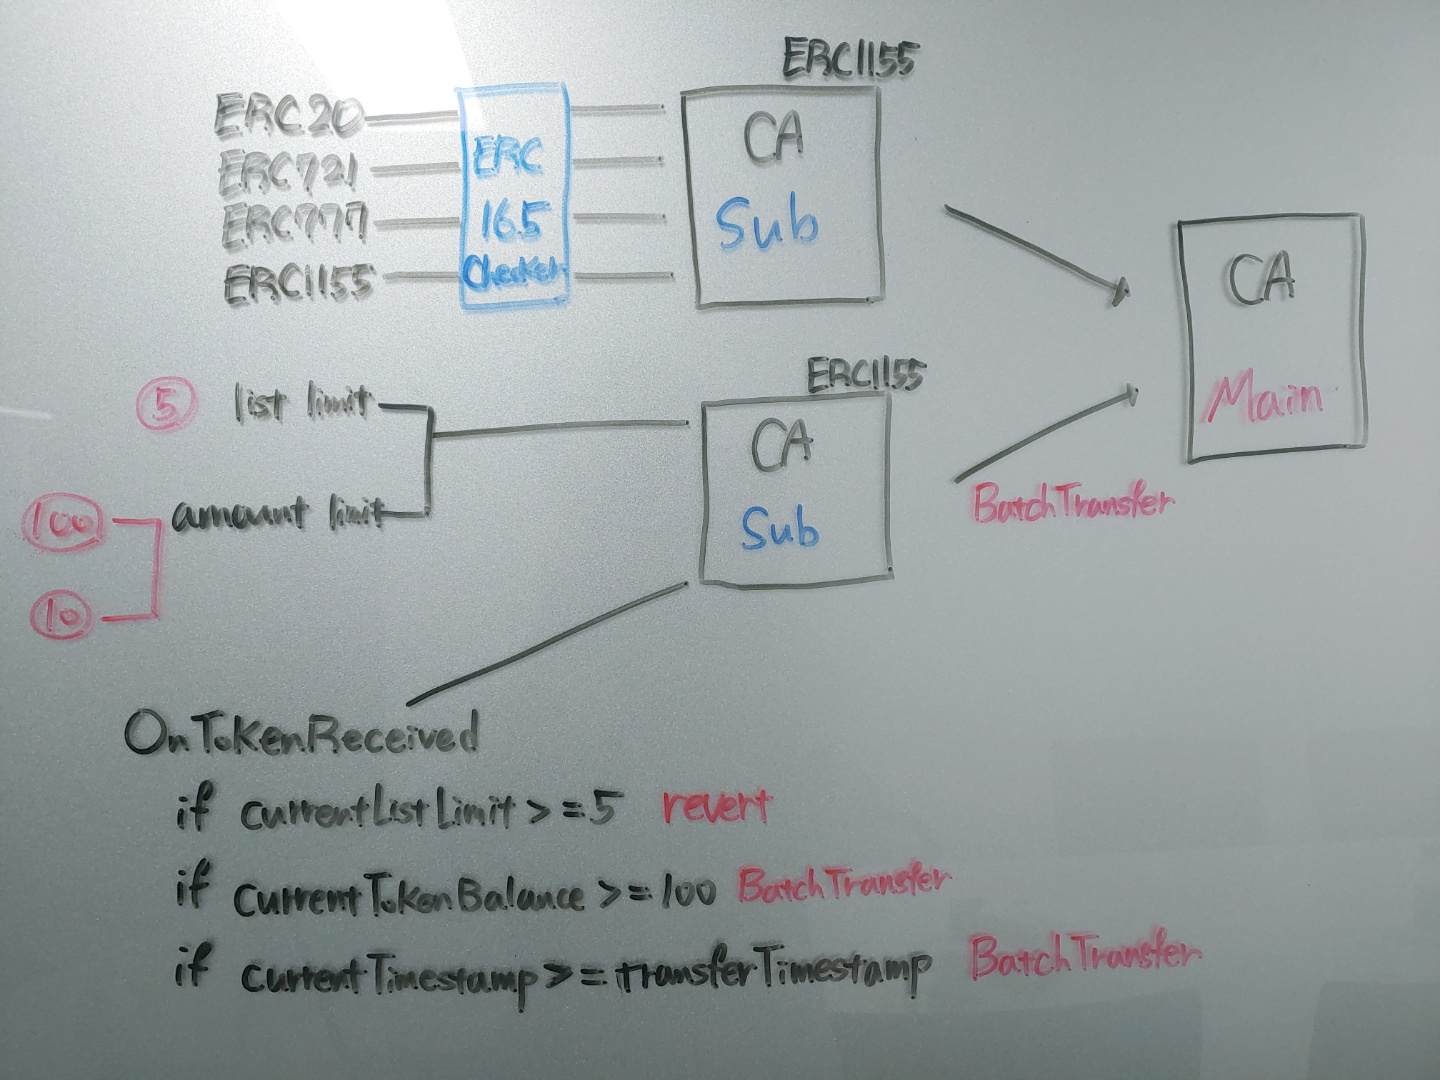 ERC1155
ERC20
ERC721
ERC777
ERC1155
ERC
165
Checker
CA
Sub
CA
Main
ERC1155
5 list limit
100 amount limit
10
CA
Sub
BatchTransfer
OnTokenReceived
if currentListLimit >= 5 revert
if currentTokenBalance >= 100 BatchTransfer
if currentTimestamp >= transferTimestamp BatchTransfer